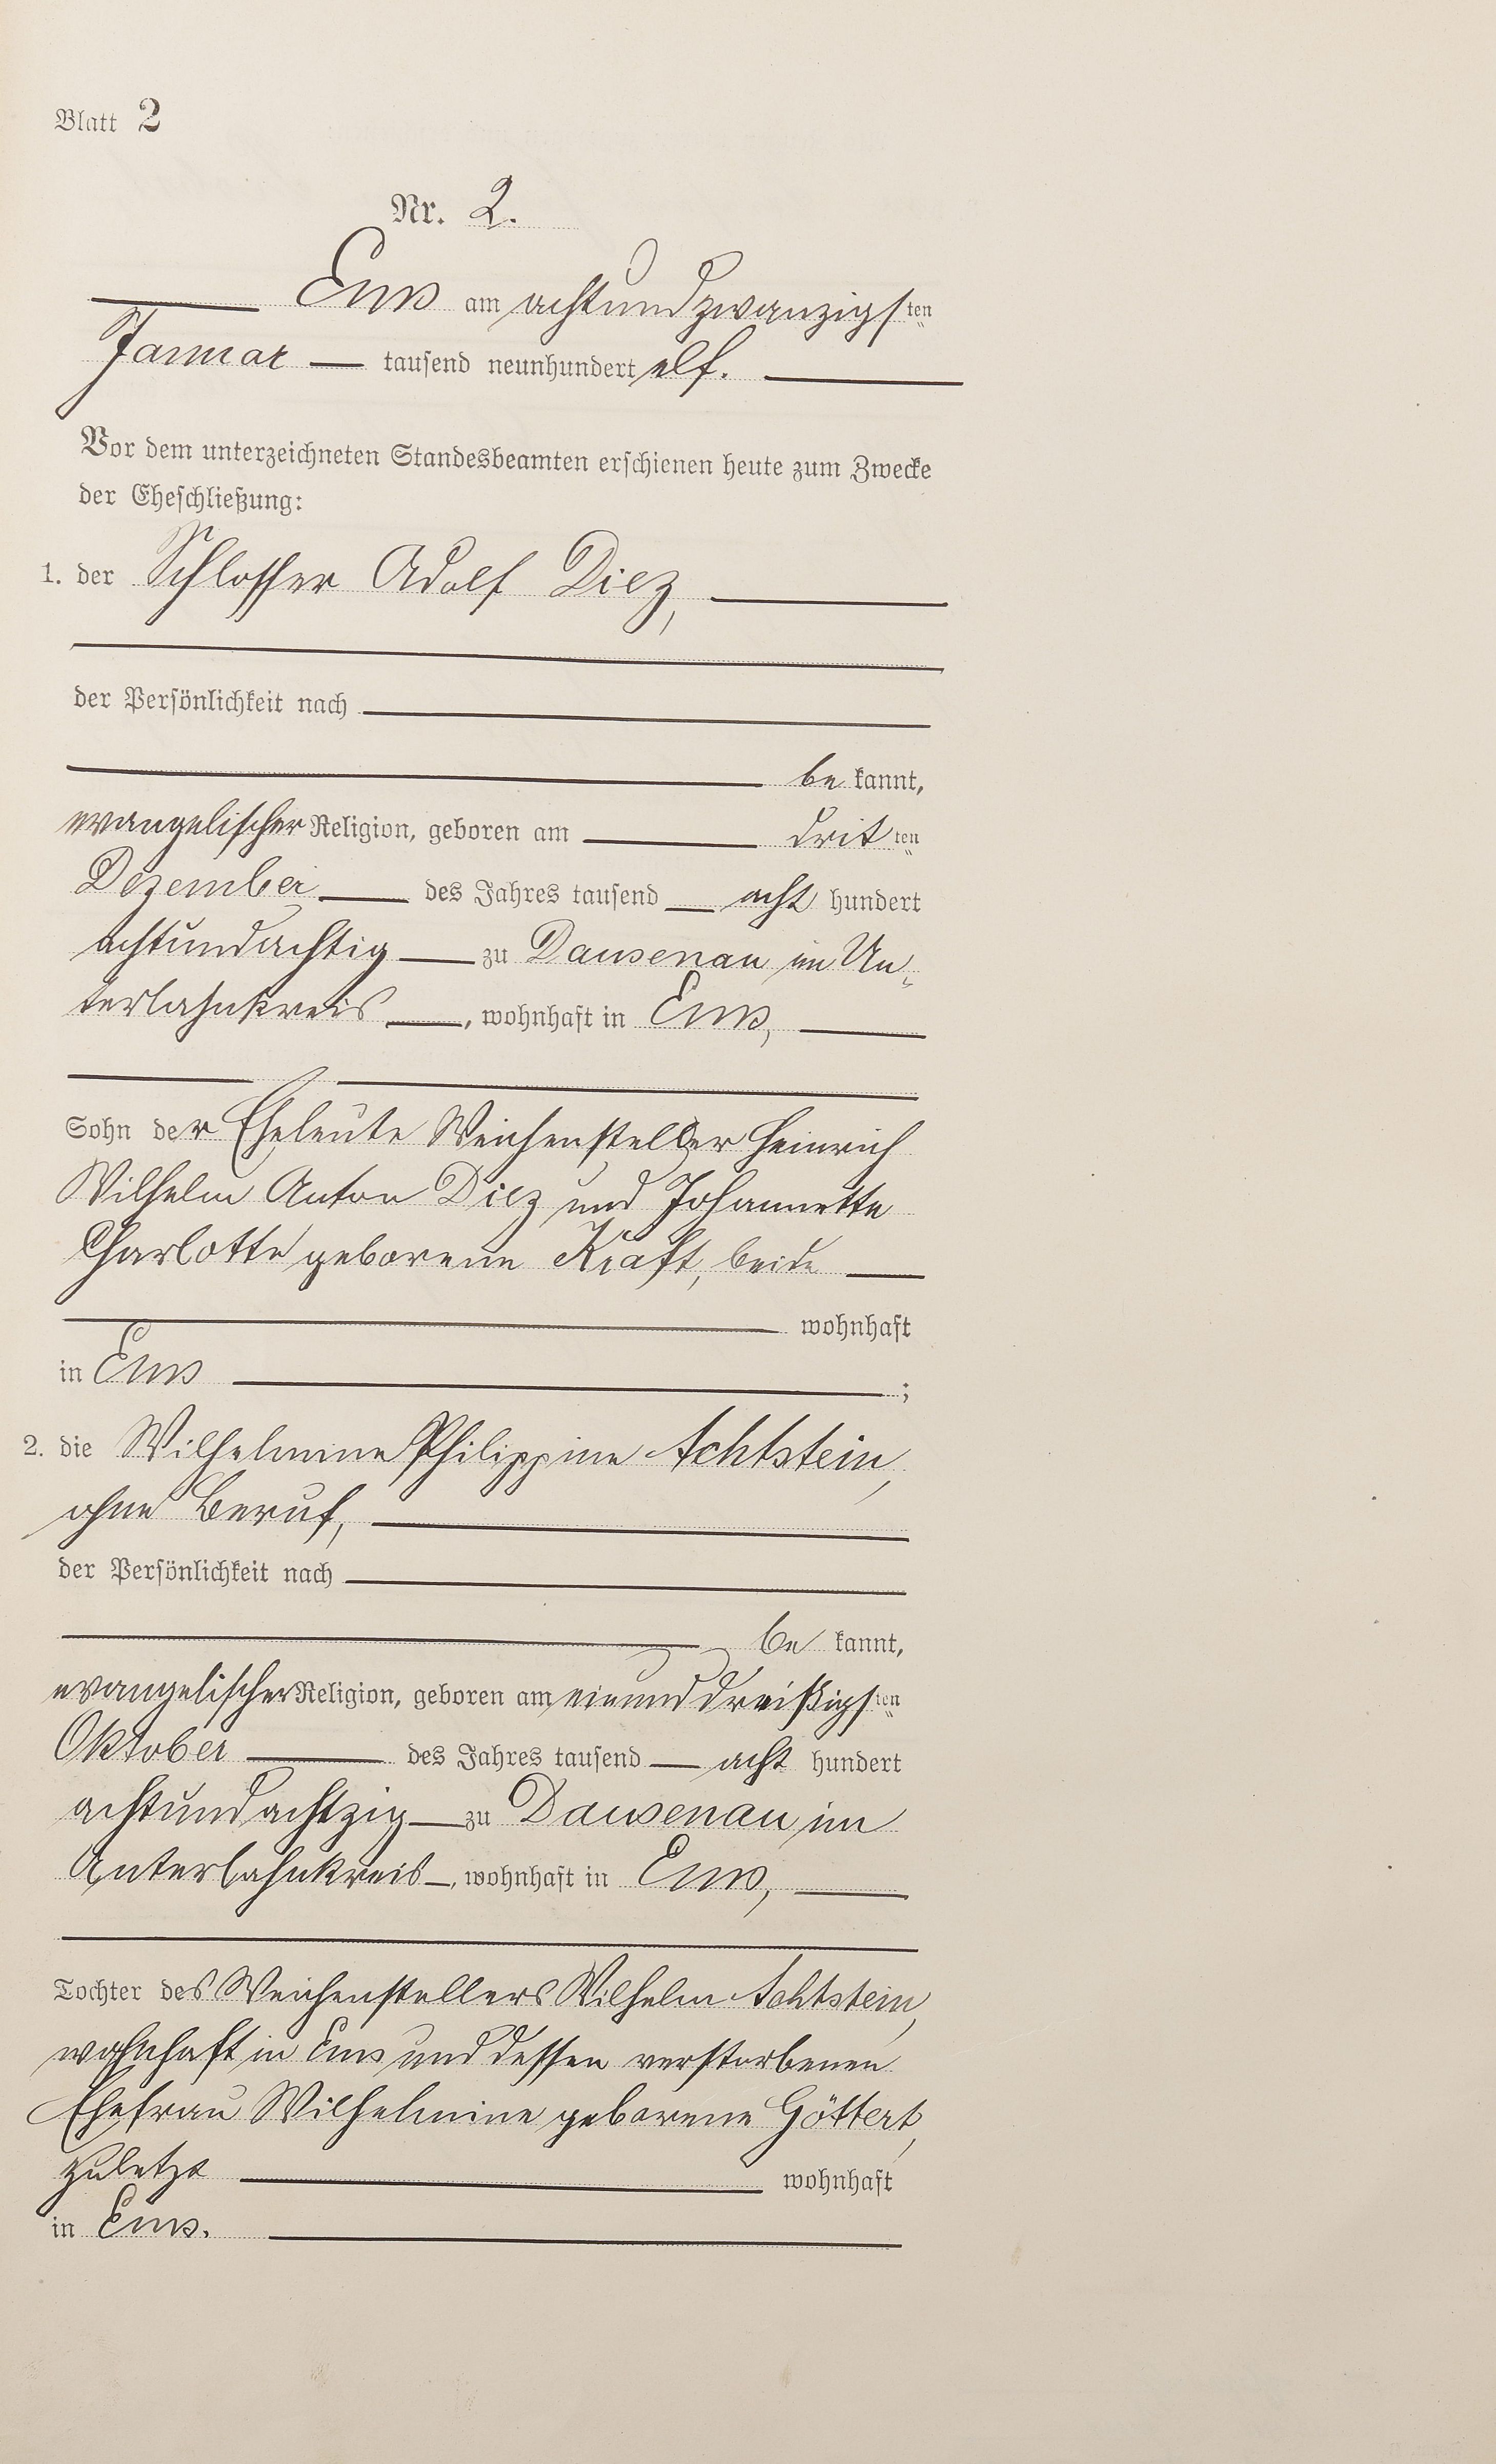 Blatt 2
Nr. 2.
Ems am achtundzwanzigsten
Januar tausend neunhundert elf.
Vor dem unterzeichneten Standesbeamten erschienen heute zum Zwecke
der Eheschließung:
1. der Schlosser Adolf Diez,
der Persönlichkeit nach
be kannt,
evangelischer Religion, geboren am dritten
Dezember des Jahres tausend acht hundert
achtundachtig zu Dausenau im Un-
terlahnkreis, wohnhaft in Ems,
Sohn der Eheleute Weichensteller Heinrich
Wilhelm Anton Diez und Johannette
Charlotte geborenen Kraft, beide
wohnhaft
in Ems ;
2. die Wilhelmine Philippine Achtstein,
ohne Beruf,
der Persönlichkeit nach
be kannt,
evangelischer Religion, geboren am einunddreißigsten
Oktober des Jahres tausend acht hundert
achtundachtzig zu Dausenau im
Unterlahnkreis, wohnhaft in Ems,
Tochter des Weichenstellers Wilhelm Achtstein,
wohnhaft in Ems und dessen verstorbenen
Ehefrau Wilhelmine geborene Göttert,
zuletzt wohnhaft
in Ems.